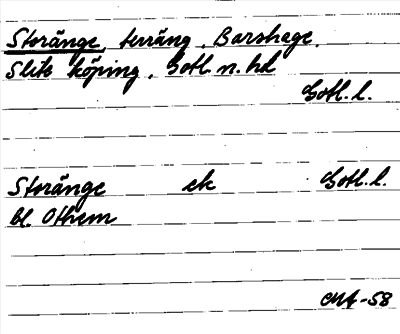 Storänge, terräng, Barshage,
Slite köping, Gotl. n. hd
Gotl. l.
Storänge ek Gotl. l.
bl. Othem
CMA-58